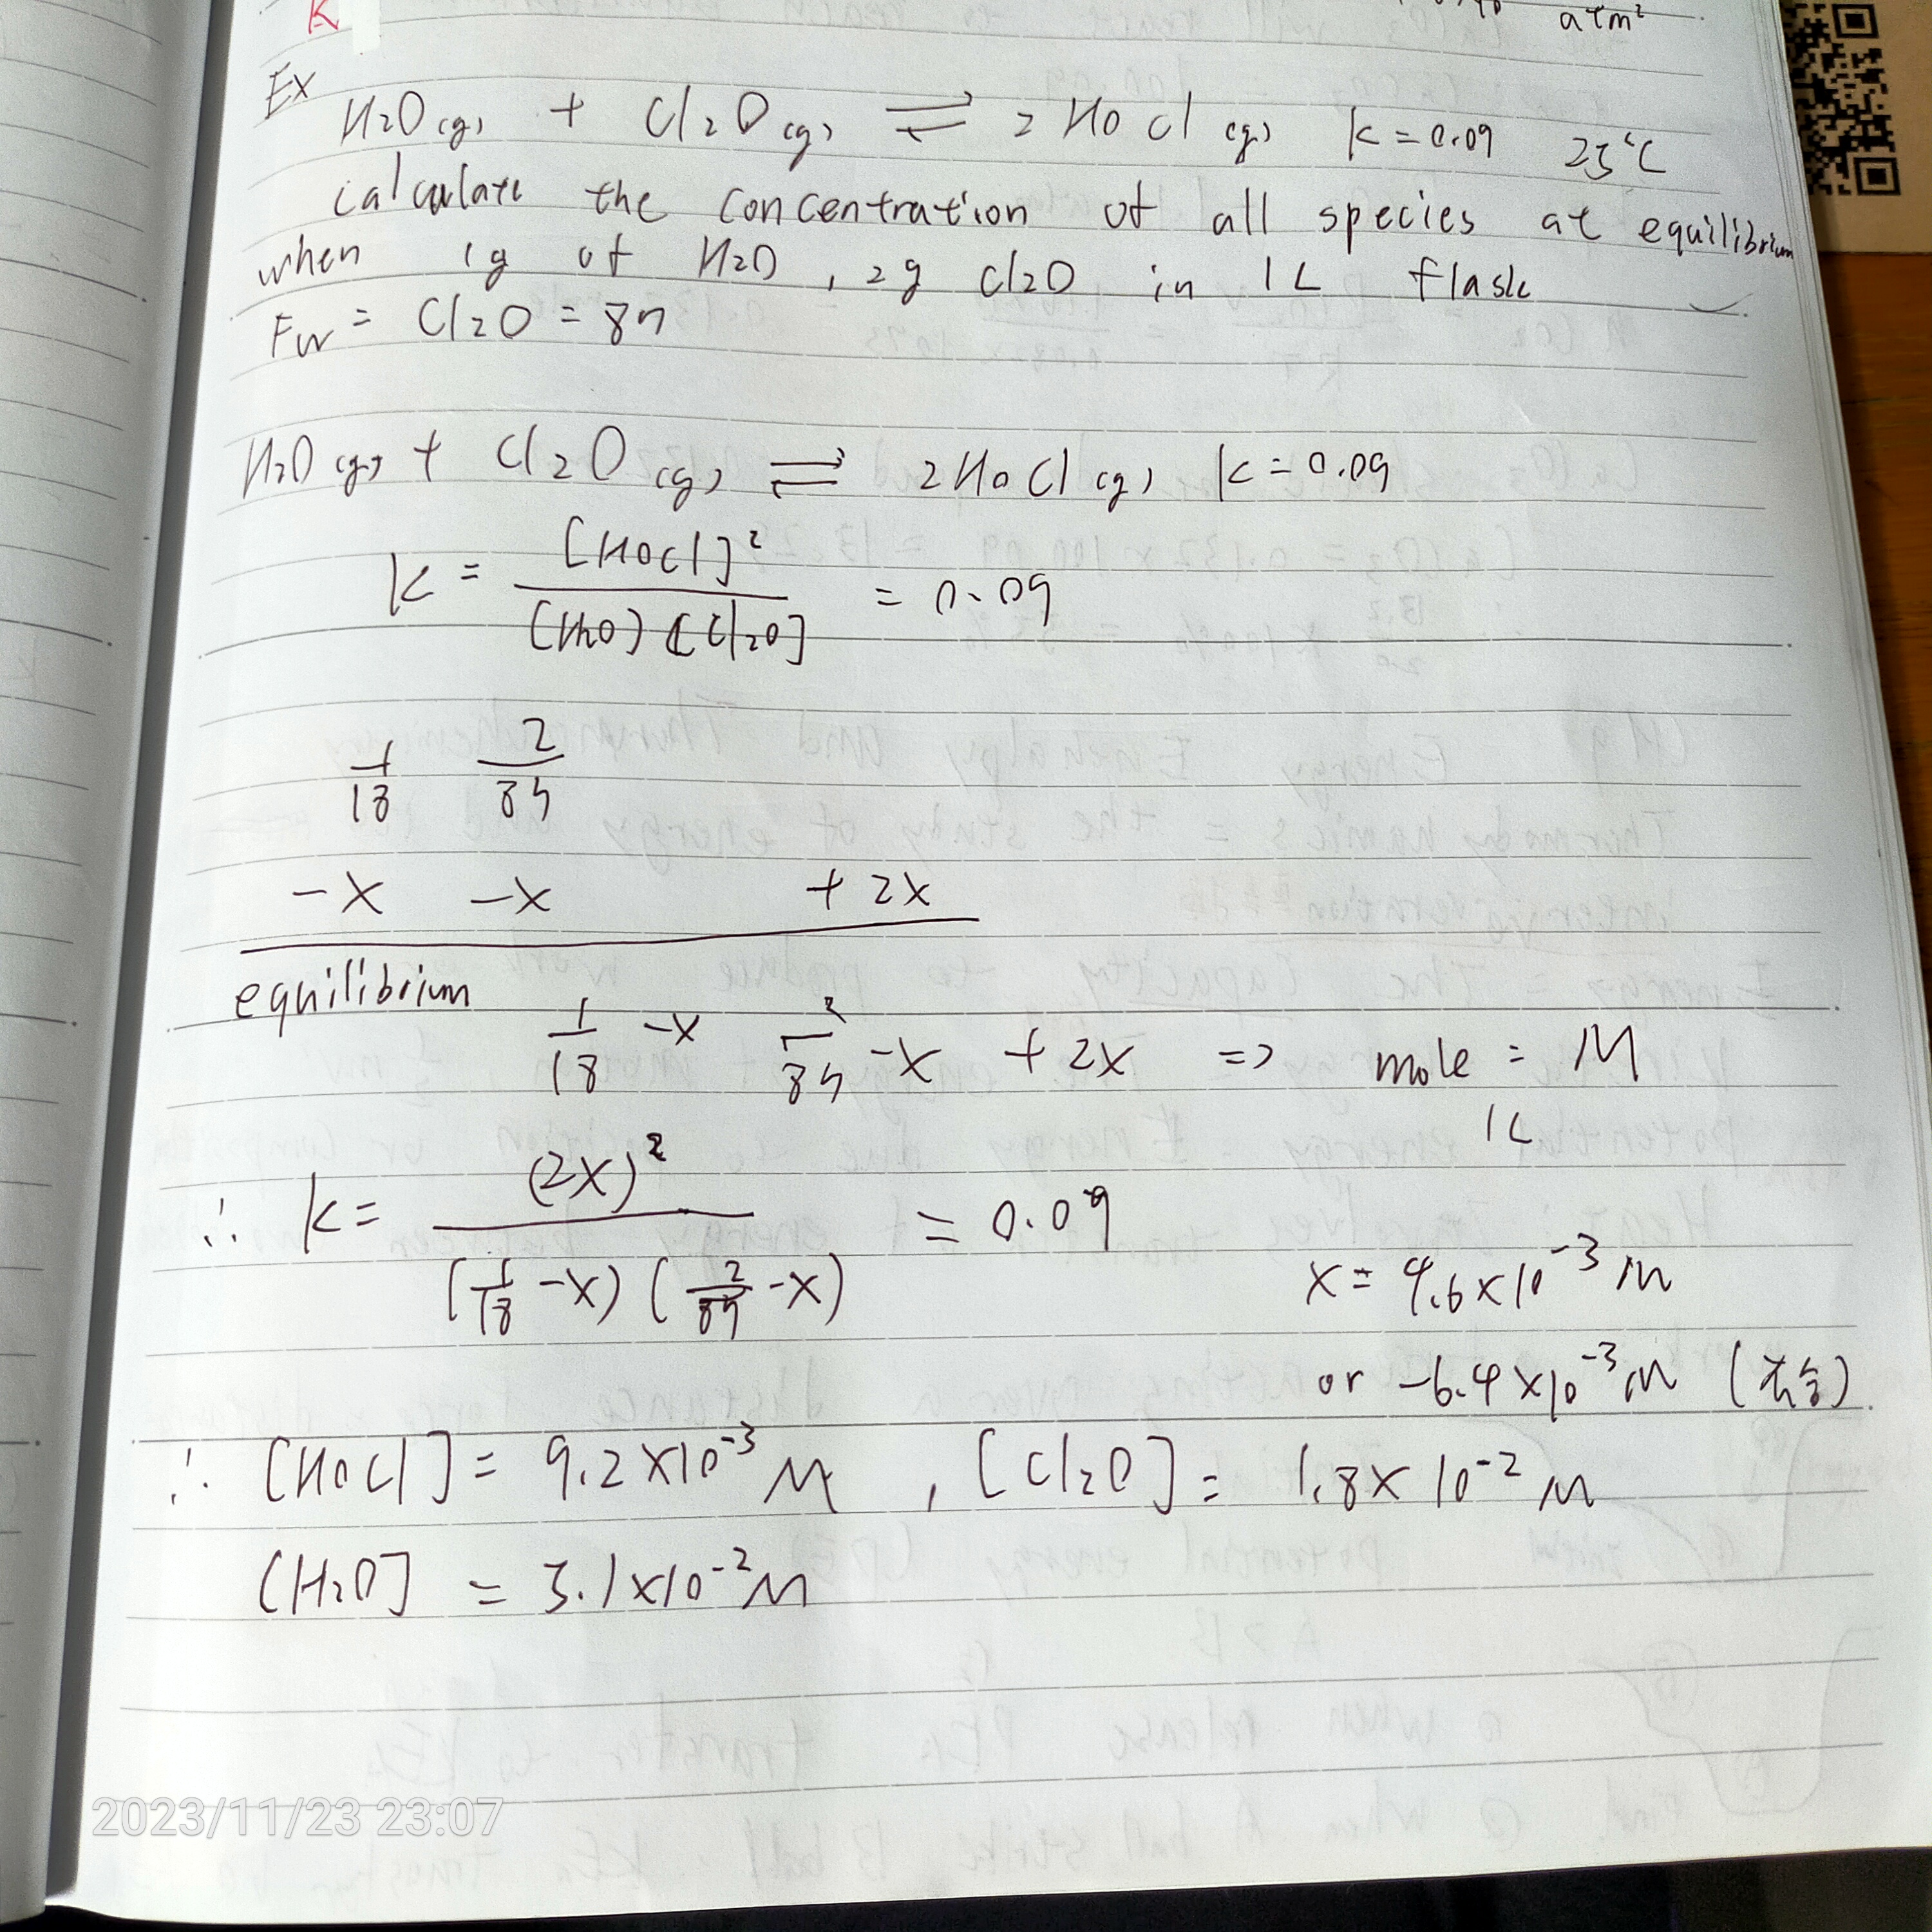 K
atm²
Ex
H₂O(g) + Cl₂O(g) ⇌ 2HOCl(g) K=0.09 25°C
calculate the concentration of all species at equilibrium
when 1g of H₂O, 2g Cl₂O in 1L flask
Fw = Cl₂O = 87
H₂O(g) + Cl₂O(g) ⇌ 2HOCl(g) K=0.09
K = [HOCl]² / [H₂O][Cl₂O] = 0.09
1/18 2/87
-x -x +2x
equilibrium
1/18 -x 2/87 -x +2x => mole / 1L = M
∴ K = (2x)² / (1/18 -x)(2/87 -x) = 0.09
x = 4.6×10⁻³ M
or -6.4×10⁻³ M (不合)
∴ [HOCl] = 9.2×10⁻³ M, [Cl₂O] = 1.8×10⁻² M
[H₂O] = 5.1×10⁻² M
2023/11/23 23:07